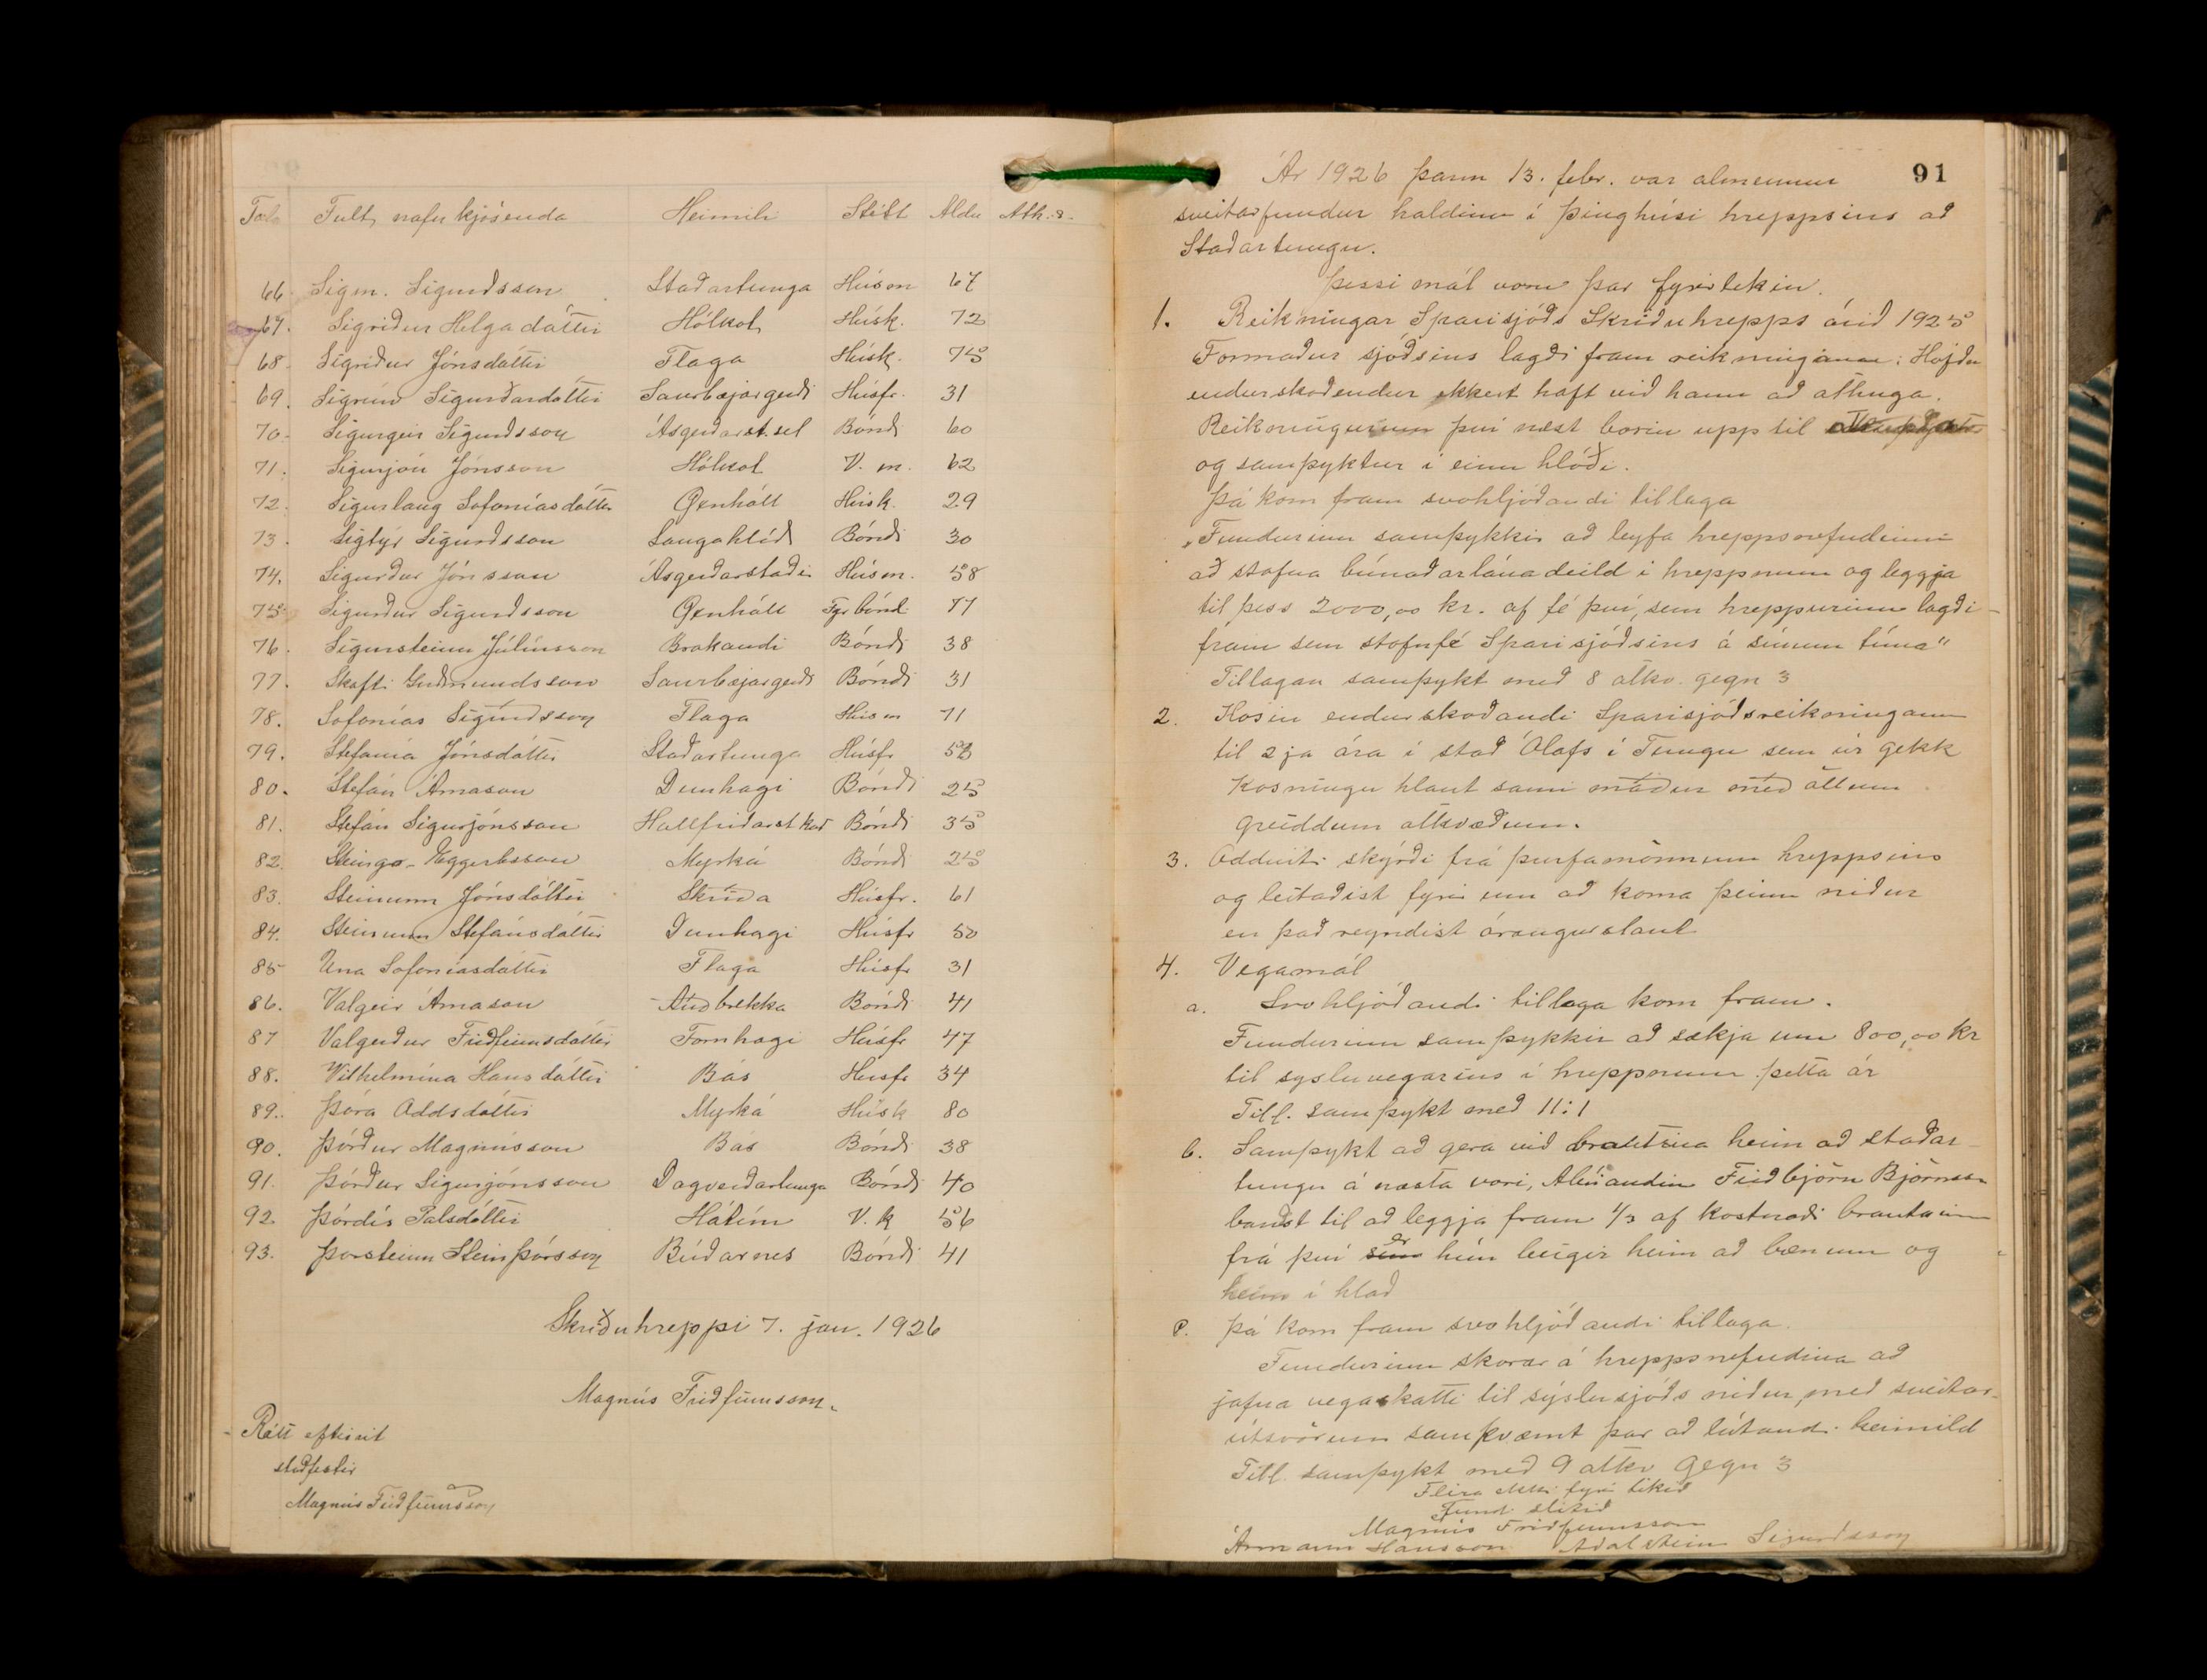 Tala Fult nafn kjósenda Heimili Stétt Aldur Ath.s.
66. Sigm. Sigurdsson Staðartunga Húsm 67
67. Sigriður Helgadóttir Hólkot Húsk. 72
68. Sigriður Jónsdóttir Flaga Húsk. 75
69. Sigrún Sigurðardóttir Saurbæjargerði Húsfr. 31
70. Sigurgeir Sigurdsson Ásgerðarst.sel Bóndi 60
71. Sigurjón Jónsson Hólkot V. m. 62
72. Sigurlaug Sofoníasdóttir Öxnhóll Húsk. 29
73. Sigtýr Sigurdsson Laugahlíð Bóndi 30
74. Sigurður Jónsson Ásgerðarstaðir Húsm. 58
75. Sigurður Sigurdsson Öxnhóll Fyr bónd. 77
76. Sigursteinn Júlíusson Brakandi Bóndi 38
77. Skafti Guðmundsson Saurbæjargerði Bóndi 31
78. Sofonías Sigurdsson Flaga Húsm 71
79. Stefanía Jónsdóttir Staðartunga Húsfr 53
80. Stefán Árnason Dunhagi Bóndi 25
81. Stefán Sigurjónsson Hallfriðarst kot Bóndi 35
82. Steingr. Eggertsson Myrká Bóndi 25
83. Steinunn Jónsdóttir Skriða Húsfr. 61
84. Steinunn Stefánsdóttir Dunhagi Húsfr 50
85 Una Sofoníasdóttir Flaga Húsfr 31
86. Valgeir Árnason Auðbrekka Bóndi 41
87 Valgerður Friðfinnsdóttir Fornhagi Húsfr 47
88. Vilhelmína Hansdóttir Bás Húsfr 34
89. Þóra Oddsdóttir Myrká Húsk 80
90. Þórður Magnússon Bás Bóndi 38
91. Þórður Sigurjónsson Dagverðartunga Bóndi 40
92 Þórdís Pálsdóttir Hátún V. k 56
93. Þorsteinn Steinþórsson Búðarnes Bóndi 41
Skriðuhreppi 7. jan. 1926
Magnús Friðfinnsson.
Rétt eftirrit
staðfestir
Magnús Friðfinnsson
91
Ár 1926 þann 13. febr. var almennur
sveitarfundur haldinn í þinghúsi hreppsins að
Staðartungu.
Þessi mál voru þar fyrirtekin.
1. Reikningar Sparisjóðs Skriðuhrepps árið 1925
Formaður sjóðsins lagði fram reikninginn. Höfðu
endurskoðendur ekkert haft við hann að athuga.
Reikningurinn því næst borin upp til
og samþyktur í einu hlóði.
Þá kom fram svohljóðandi tillaga
„Fundurinn samþykkir að leyfa hreppsnefndinni
að stofna búnaðarlánadeild i hreppnum og leggja
til þess 2000,00 kr. af fé því, sem hreppurinn lagði
fram sem stofnfé Sparisjóðsins á sínum tíma"
Tillagan samþykt með 8 atkv. gegn 3
2. Kosin endurskoðandi Sparisjóðsreikninganna
til 2ja ára í stað Ólafs í Tungu sem úr gekk
Kosningu hlaut sami maður með öllum
greiddum atkvæðum.
3. Oddviti skýrði frá þurfamönnum hreppsins
og leitaðist fyrir um að koma þeim niður
en það reyndist árangurslaust
4. Vegamál
a. Svohljóðandi tillaga kom fram.
Fundurinn samþykkir að sækja um 800,00 kr
til sysluvegarins í hreppnum þetta ár
Till. samþykt með 11:1
b. Samþykt að gera við brautina heim að Staðar-
tungu á næsta vori, Ábúandinn Friðbjörn Björnsson
baudst til að leggja fram 1/3 af kostnaði brautarinn
frá því sem er hún beigir heim að bænum og
heim í hlað
c. Þá kom fram svohljóðandi tillaga.
Fundurinn skorar á hreppsnefndina að
jafna vegaskatti til sýslusjóðs niður með sveitar-
útsvörum samkvæmt þar að lútandi heimild
Till. samþykt með 9 atkv gegn 3
Fleira ekki fyrir tekið
Fundi slitið
Magnús Friðfinnsson
Ármann Hansson Aðalsteinn Sigurdsson